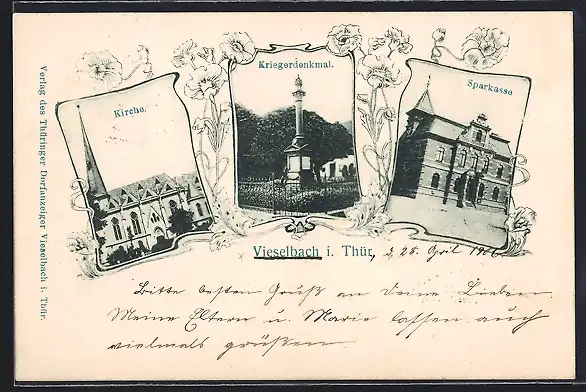 Kriegerdenkmal.
Kirche.
Sparkasse
Verlag des Thüringer Dorfanzeiger Vieselbach i. Thür.
Vieselbach i. Thür, d. 25. April 1906.
Bitte besten Gruß an deine Lieben
Meine Eltern u. Marie lassen auch
vielmals grüßen.